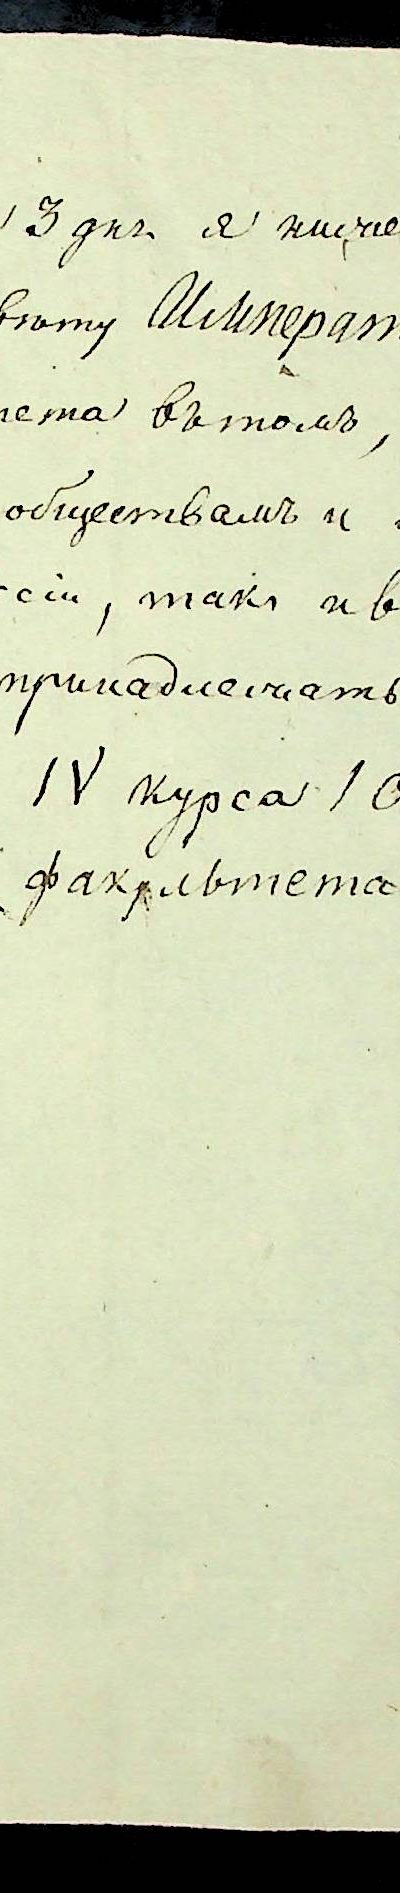 3 дня я ниже
вѣту Императ
тета въ томъ,
обществамъ и
ссіи, такъ и в
принадлежать
IV курса Ю
факультета